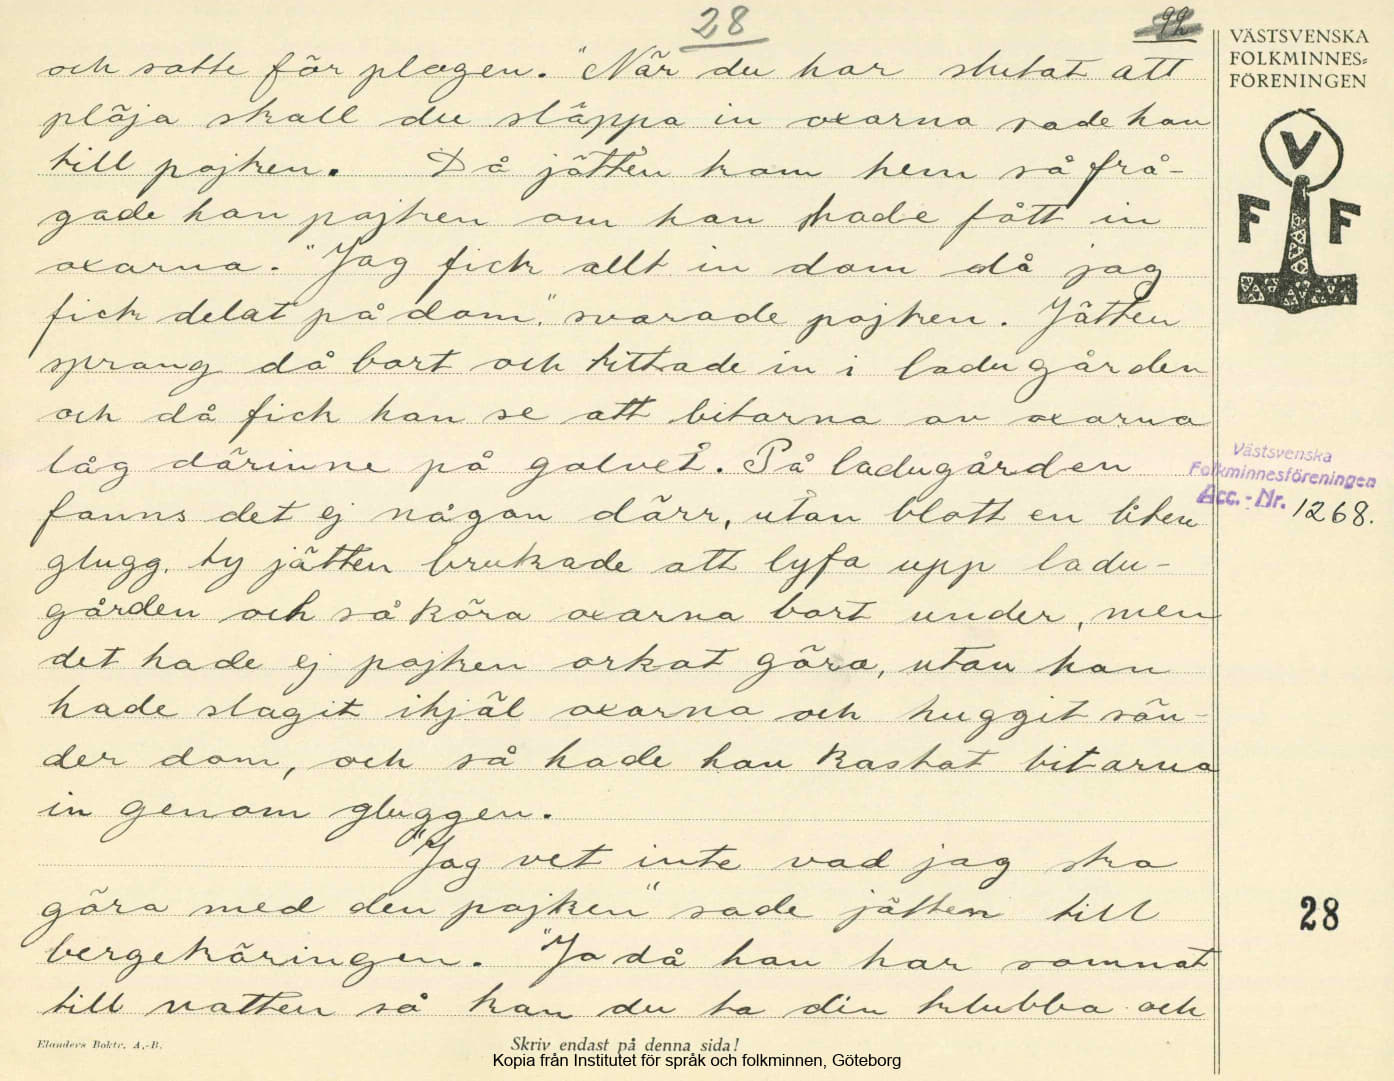 28
92
och satte för plogen. "När du har slutat att
plöja skall du släppa in oxarna sade han
till pojken. Då jätten kom hem så frå-
gade han pojken om han hade fått in
oxarna. "Jag fick allt in dom då jag
fick delat på dom", svarade pojken. Jätten
sprang då bort och tittade in i ladugården
och då fick han se att bitarna av oxarna
låg därinne på golvet. På ladugården
fanns det ej någon därr, utan blott en liten
glugg. ty jätten brukade att lyfa upp ladu-
gården och så köra oxarna bort under, men
det hade ej pojken orkat göra, utan han
hade slagit ihjäl oxarna och huggit sön-
der dom, och så hade han kastat bitarna
in genom gluggen.
"Jag vet inte vad jag ska
göra med den pojken" sade jätten till
bergekäringen. "Jo då han har somnat
till natten så kan du ta din klubba och
VÄSTSVENSKA
FOLKMINNES=
FÖRENINGEN
V
F F
Västsvenska
Folkminnesföreningen
Acc.-Nr. 1268.
28
Elanders Boktr. A.-B.
Skriv endast på denna sida!
Kopia från Institutet för språk och folkminnen, Göteborg